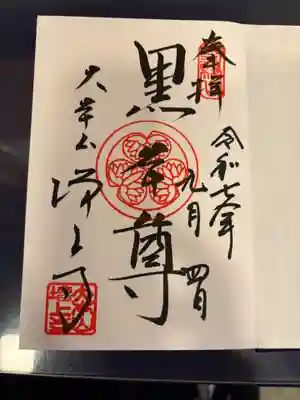 奉拝
令和七年
九月四日
黒本尊
大本山
増上寺